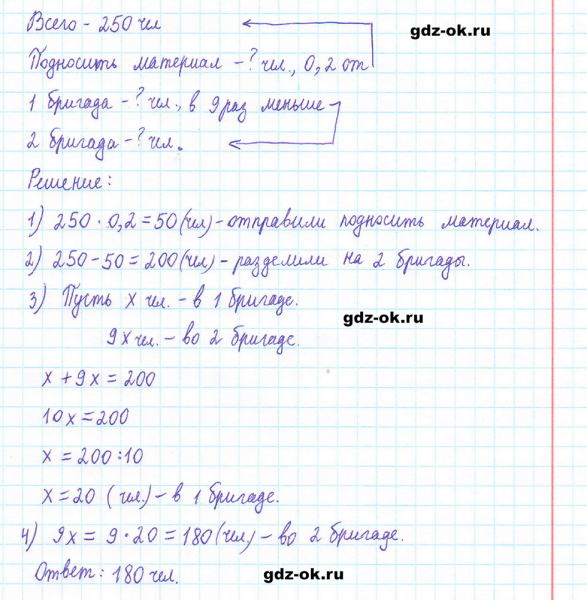 Всего - 250 чел
gdz-ok.ru
Подносить материал - ? чел., 0,2 от
1 бригада - ? чел., в 9 раз меньше
2 бригада - ? чел.
Решение:
1) 250 · 0,2 = 50 (чел) - отправили подносить материал.
2) 250 - 50 = 200 (чел) - разделили на 2 бригады.
3) Пусть x чел. - в 1 бригаде.
gdz-ok.ru
9x чел. - во 2 бригаде.
x + 9x = 200
10x = 200
x = 200 : 10
x = 20 (чел.) - в 1 бригаде.
4) 9x = 9 · 20 = 180 (чел) - во 2 бригаде.
Ответ: 180 чел.
gdz-ok.ru